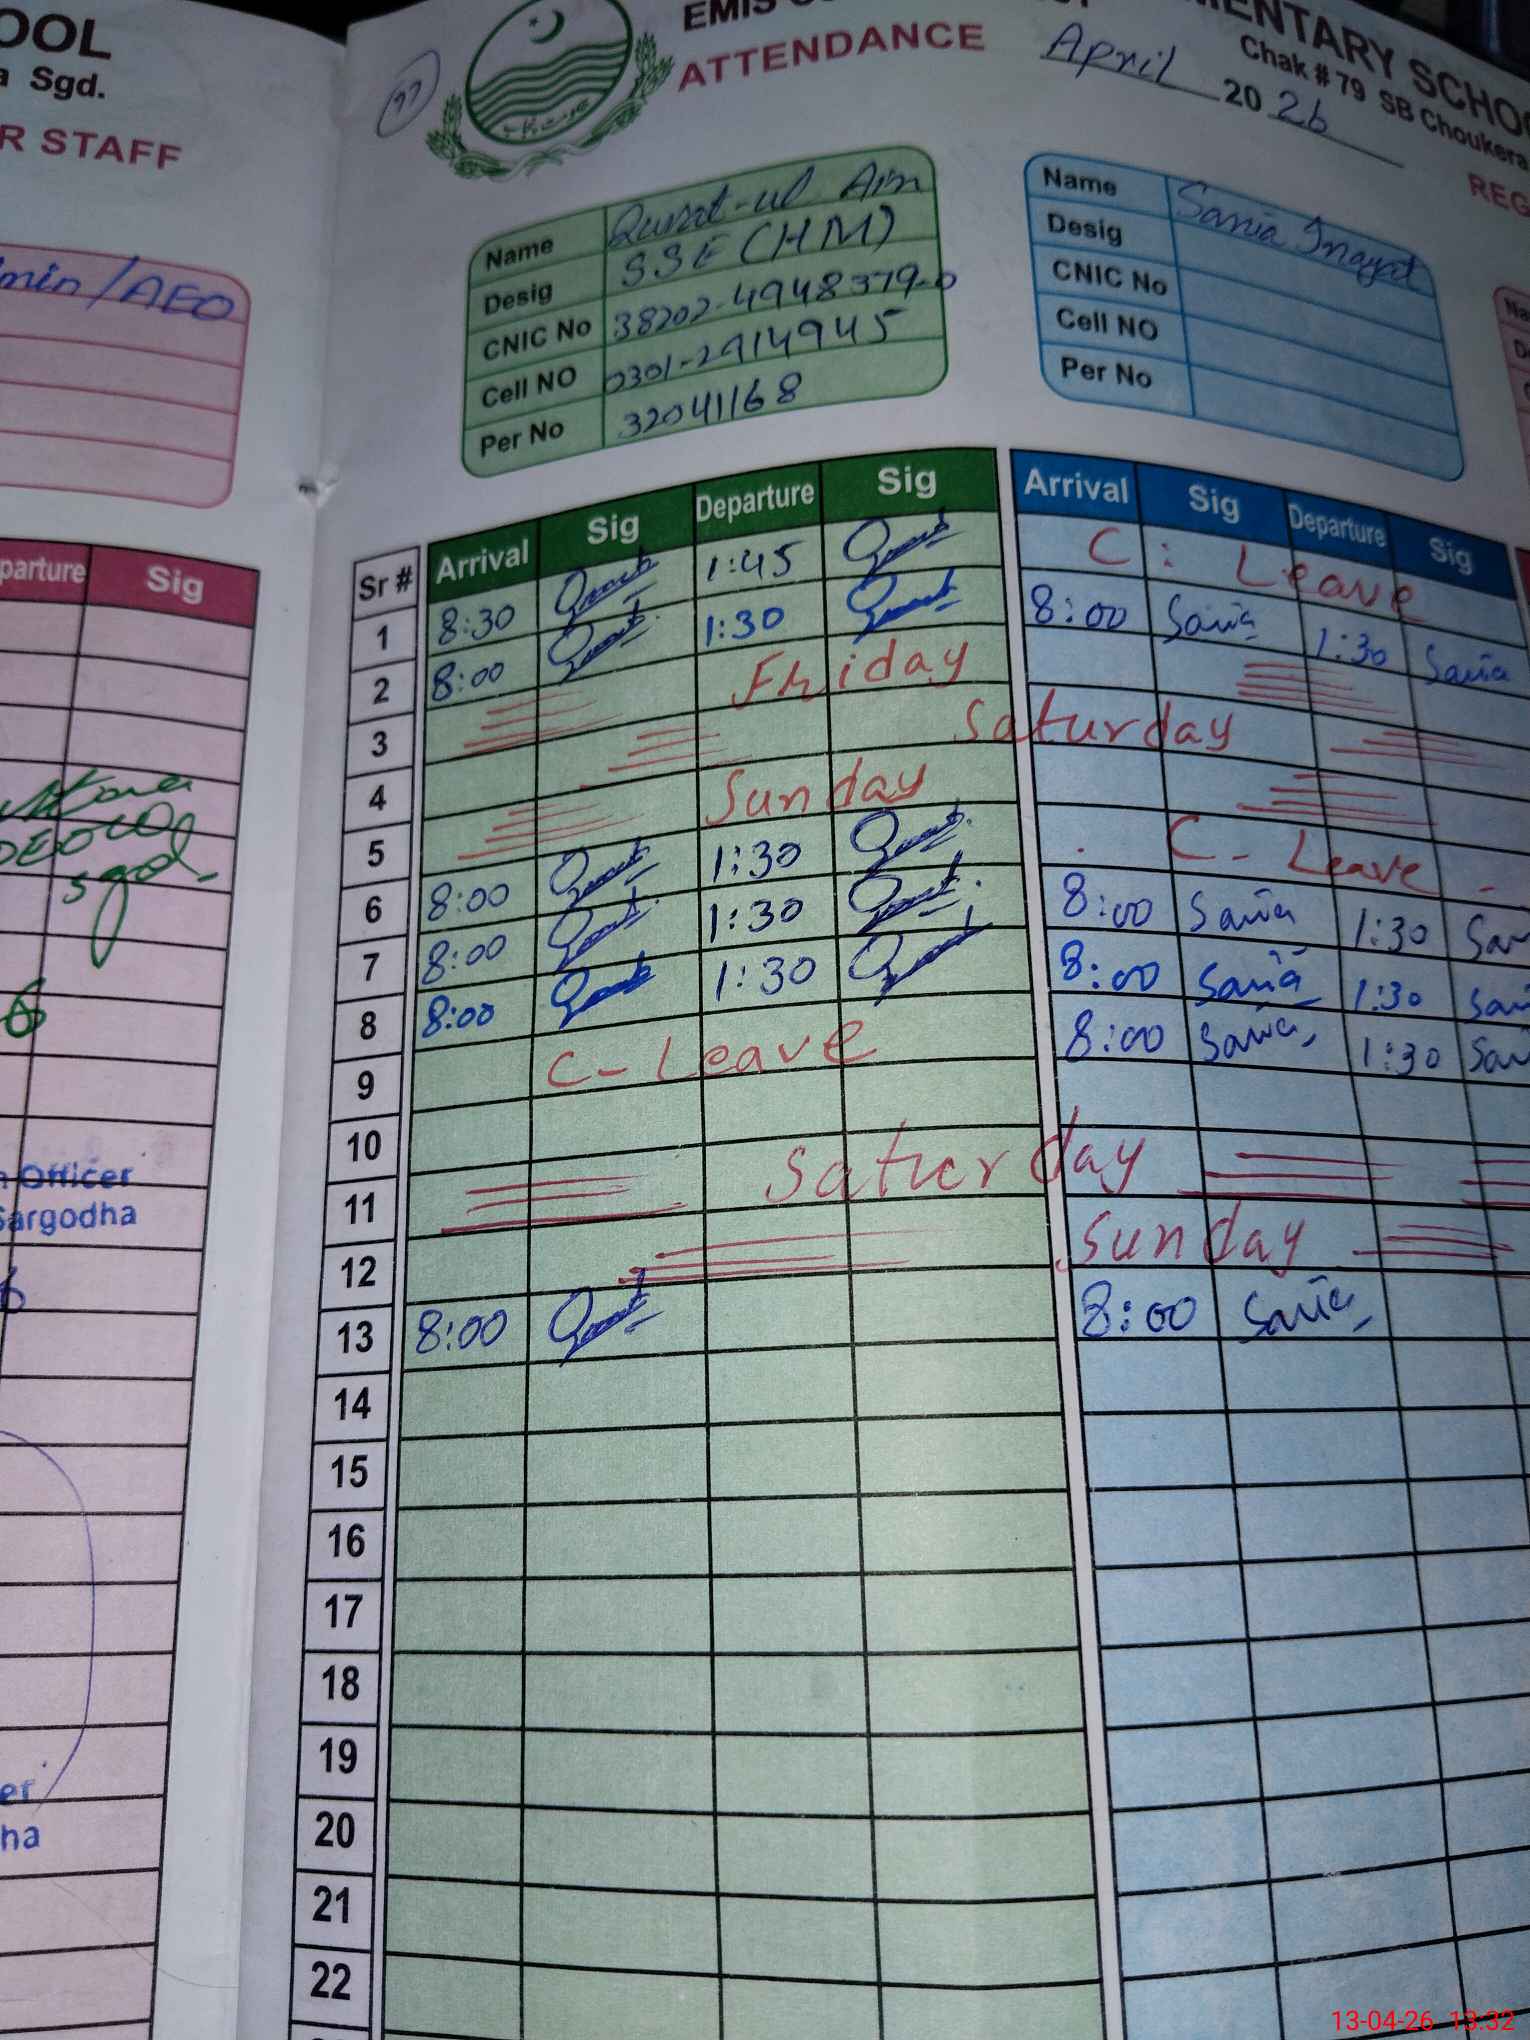 OOL
a Sgd.
R STAFF
min/AEO
parture Sig
Officer
Sargodha
er
ha
97
EMIS
MENTARY SCHOO
ATTENDANCE
April 2026
Chak # 79 SB Choukera
REG
Name Qurat-ul Ain
Desig SSE (HM)
CNIC No 38202-4948379-0
Cell NO 0301-2914945
Per No 32041168
Name Sania Inayat
Desig
CNIC No
Cell NO
Per No
Sr # Arrival Sig Departure Sig Arrival Sig Departure Sig
1 8:30 Qurat 1:45 Qurat C: Leave
2 8:00 Qurat 1:30 Qurat 8:00 Sania 1:30 Sania
3 Friday
4 Saturday
5 Sunday
6 8:00 Qurat 1:30 Qurat C- Leave -
7 8:00 Qurat 1:30 Qurat 8:00 Sania 1:30 San
8 8:00 Qurat 1:30 Qurat 8:00 Sania 1:30 San
9 C- Leave 8:00 Sania 1:30 San
10
11 Saturday
12 Sunday
13 8:00 Qurat 8:00 Sania
14
15
16
17
18
19
20
21
22
13-04-26 13:32